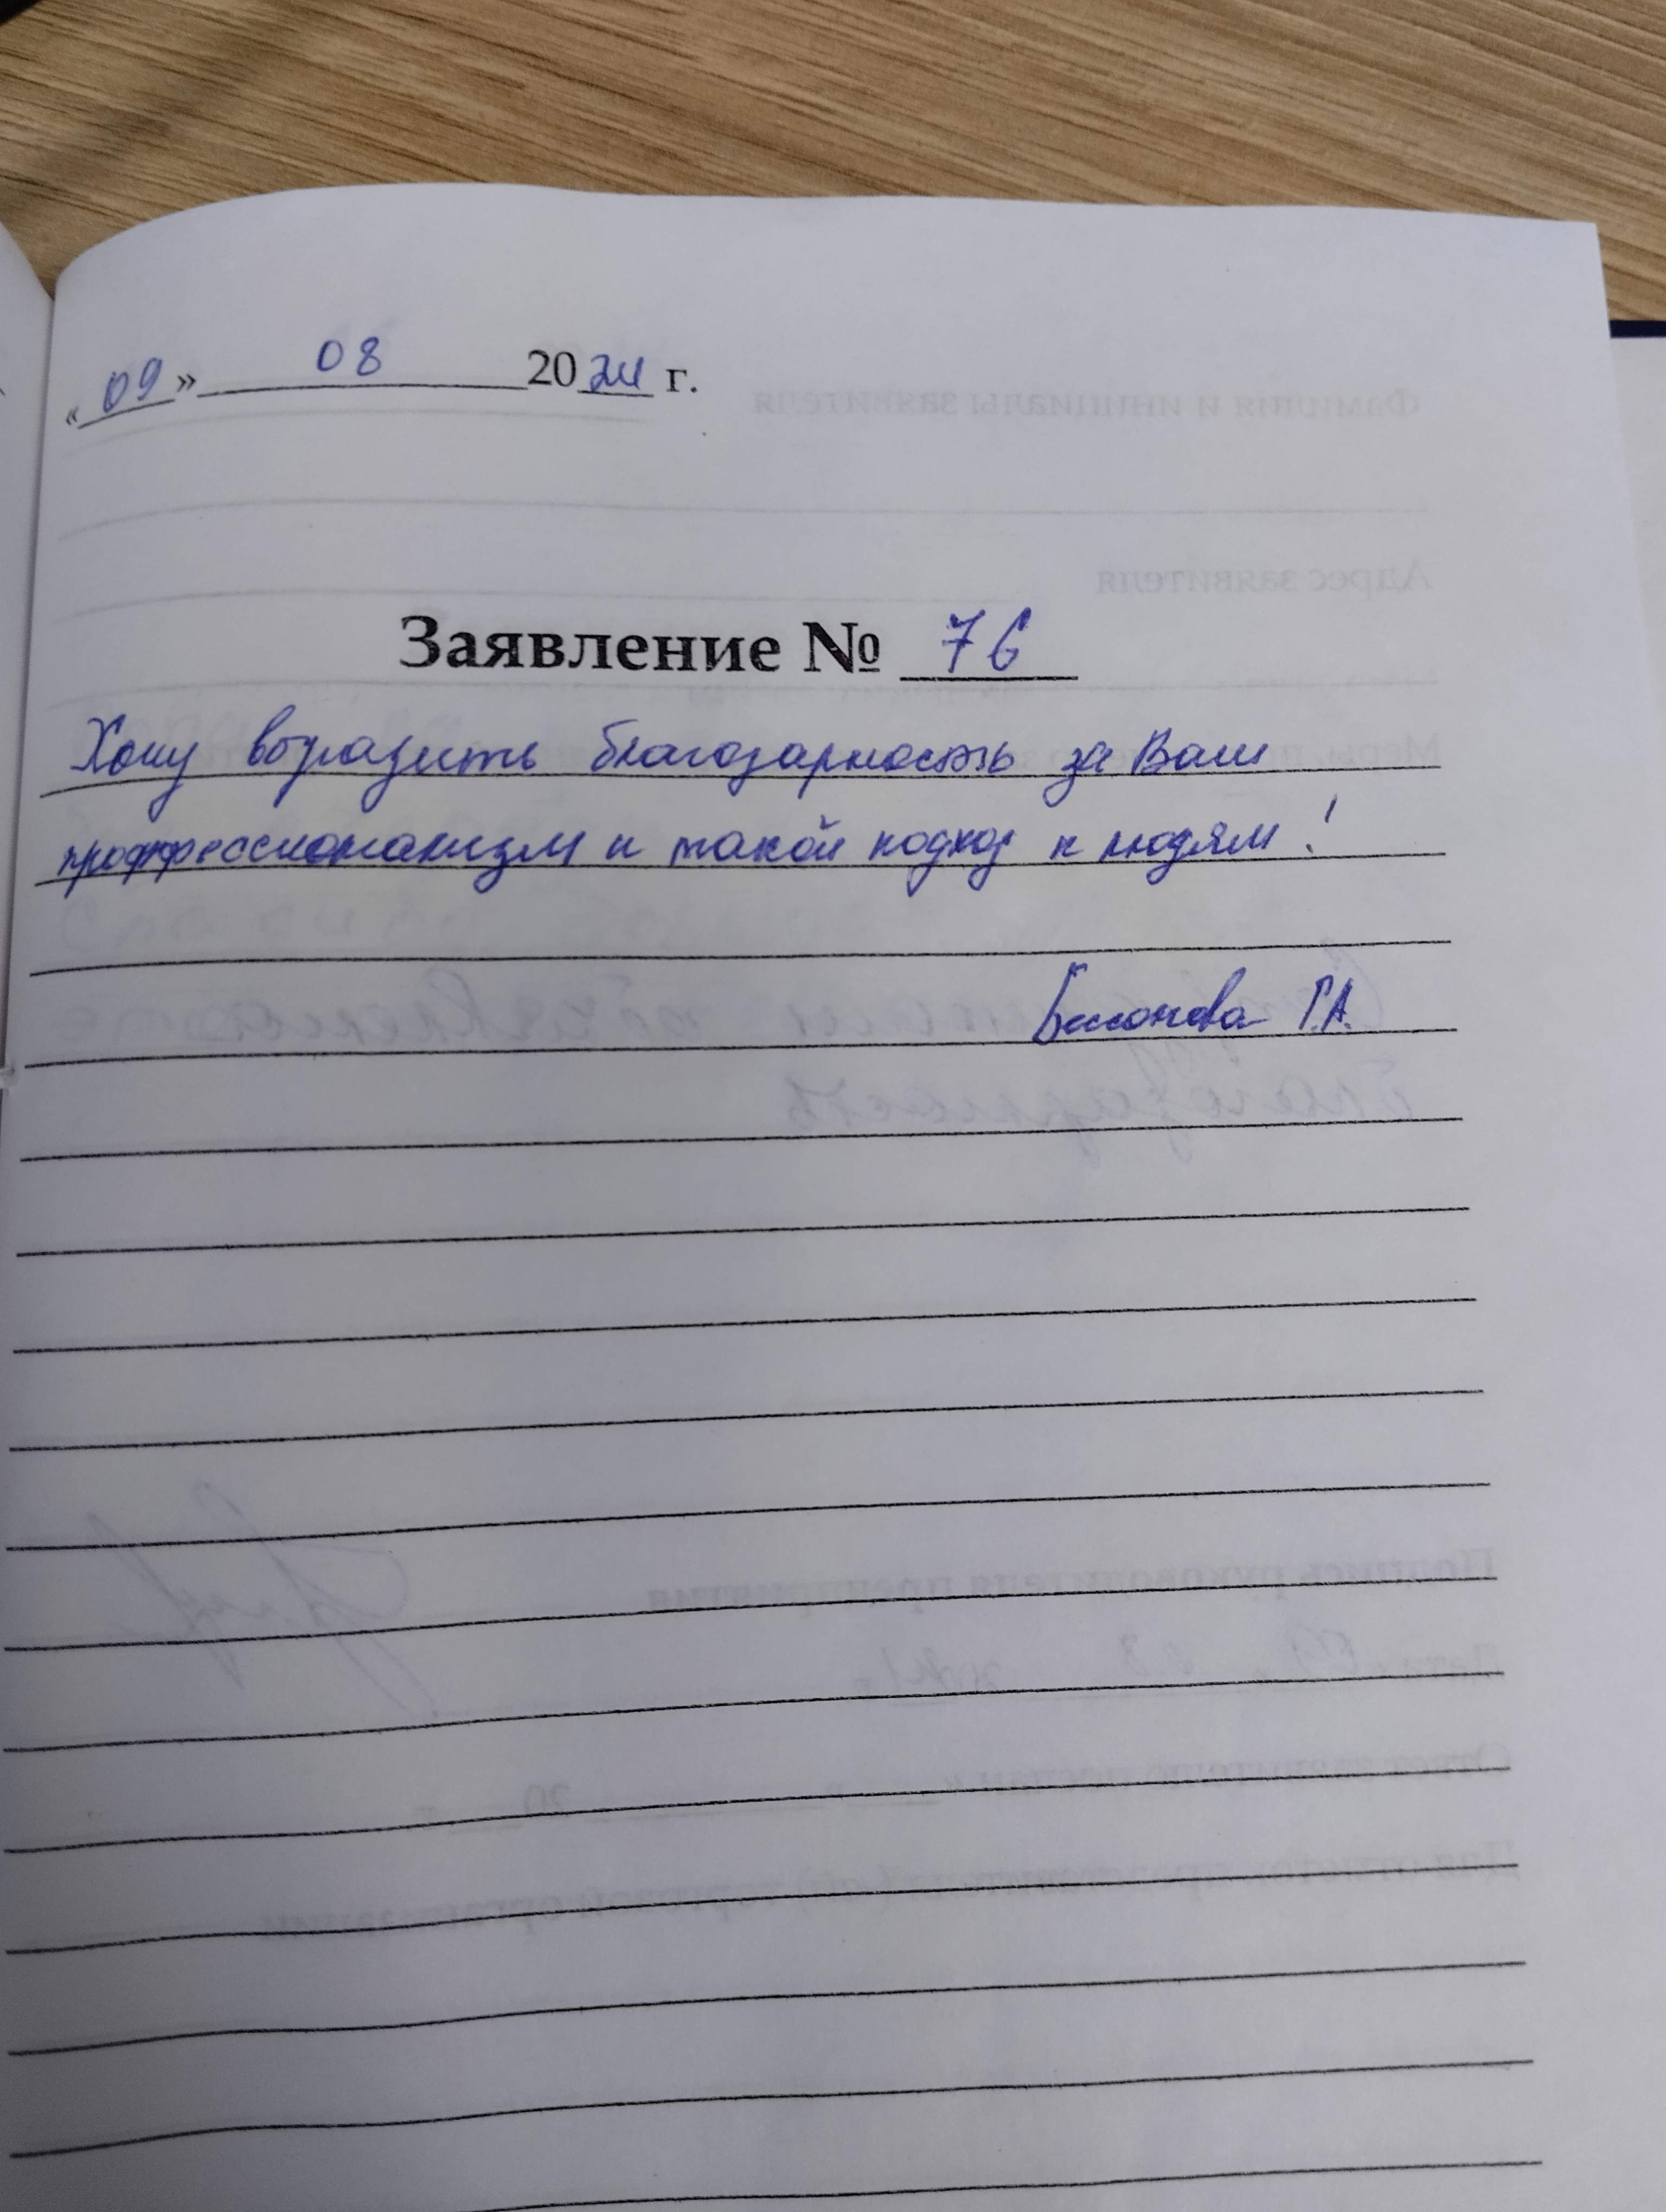 «09» 08 2024 г.
Заявление № 76
Хочу выразить благодарность за Ваш
профессионализм и такой подход к людям!
Г.А.